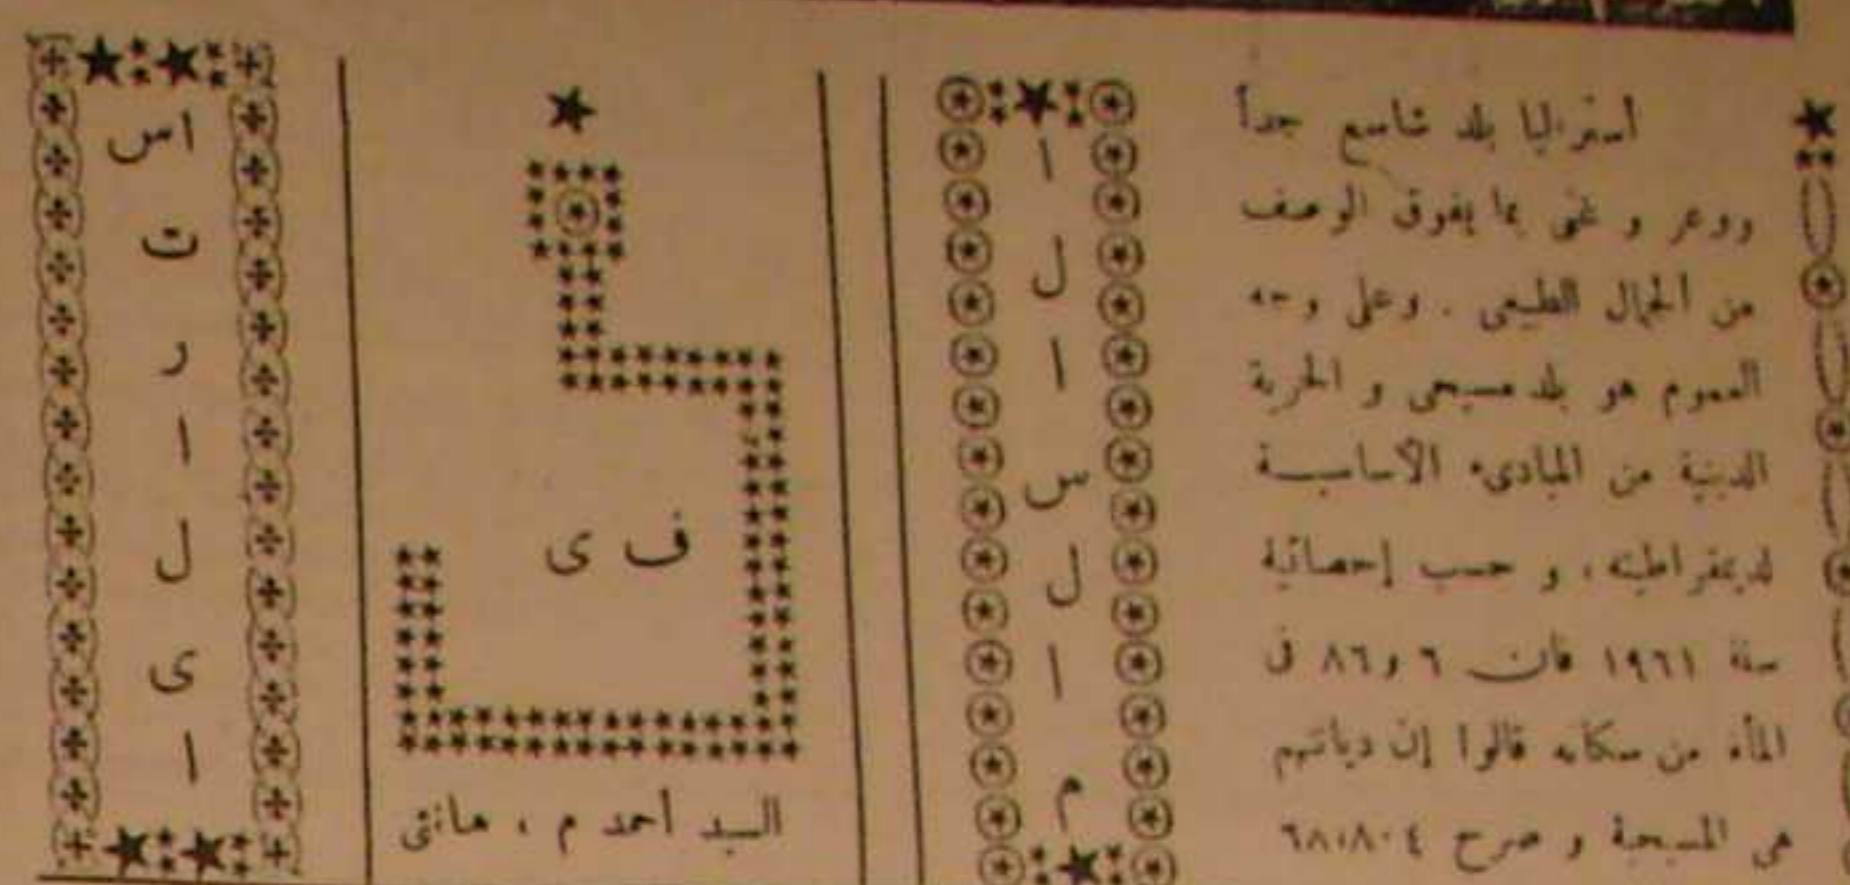 أستراليا بلد شاسع جداً
ووعر و غنى بما يفوق الوصف
من الجمال الطبيعى . وعلى وجه
العموم هو بلد مسيحى و الحرية
الدينية من المبادىء الأساسية
لديمقراطيته ، و حسب إحصائية
سنة ١٩٦١ فان ٦ و ٨٦ فى
المأة من سكانه قالوا إن ديانتهم
هى المسيحية و صرح ٦٨،٨٠٤
ا
ل
ا
س
ل
ا
م
ف ى
السيد أحمد م ،
اس
ت
ر
ا
ل
ى
ا